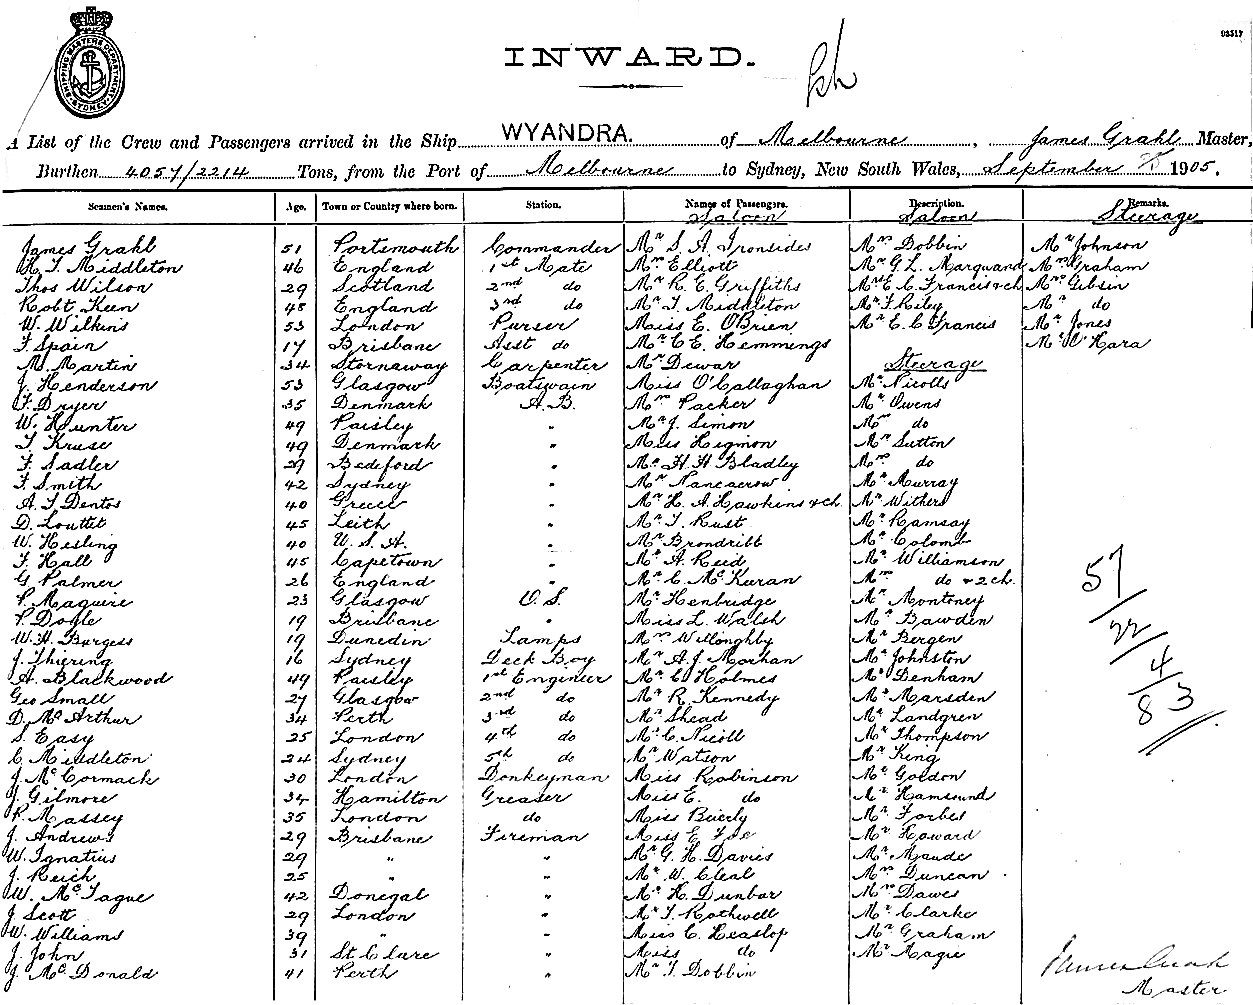 SHIPPING MASTERS DEPARTMENT SYDNEY
03517
INWARD.
A List of the Crew and Passengers arrived in the Ship WYANDRA. of Melbourne, James Grahl Master,
Burthen 4057/2214 Tons, from the Port of Melbourne to Sydney, New South Wales, September 1905.
Seamen's Names. Age. Town or Country where born. Station. Names of Passengers. Description. Remarks.
Saloon Saloon Steerage
James Grahl 51 Portsmouth Commander Mr S. A. Ironsides Mrs Dobbin Mr Johnson
H. T. Middleton 46 England 1st Mate Mrs Elliott Mr G. L. Marquand Mrs Graham
Thos Wilson 29 Scotland 2nd do Mr R. E. Griffiths Mrs E. C. Francis & ch Mrs Gibson
Robt Keen 48 England 3rd do Mr T. Middleton Mr F. Riley Mr do
W. Wilkins 53 London Purser Miss E. O'Brien Mr E. C. Francis Mr Jones
F. Spain 17 Brisbane Asst do Mr C. E. Hemmings Mr O'Hara
M. Martin 34 Stornaway Carpenter Mr Dewar Steerage
J. Henderson 53 Glasgow Boatswain Miss O'Callaghan Mr Nicolls
F. Dryer 35 Denmark A.B. Mrs Packer Mr Owens
W. Hunter 49 Paisley " Mr J. Simon Mrs do
T. Kruse 49 Denmark " Miss Higmon Mr Sutton
F. Sadler 29 Bedeford " Mr H. H. Bladley Mrs do
F. Smith 42 Sydney " Mr Nancarrow Mr Murray
A. T. Dentos 40 Greece " Mrs H. A. Hawkins & ch. Mr Withers
D. Louttit 45 Leith " Mr T. Rust Mr Ramsay
W. Hesling 40 U.S.A. " Mr Brondribb Mr Colomb
F. Hall 45 Capetown " Mr A. Reid Mr Williamson
G. Palmer 26 England " Mr C. McKuran Mrs do & 2 ch.
P. Maguire 23 Glasgow O.S. Mr Henbridge Mr Montoney
P. Doyle 19 Brisbane " Miss L. Walsh Mr Bawden
W. H. Burgess 19 Dunedin Lamps Mrs Willoughby Mr Bergen
J. Thiering 16 Sydney Deck Boy Mr A. J. Morhan Mr Johnston
A. Blackwood 49 Paisley 1st Engineer Mr C. Holmes Mr Denham
Geo Small 27 Glasgow 2nd do Mr R. Kennedy Mr Marsden
D. McArthur 34 Perth 3rd do Mr Shead Mr Landgren
S. Easy 25 London 4th do Mr C. Nicoll Mr Thompson
C. Middleton 24 Sydney 5th do Mr Watson Mr King
J. McCormack 30 London Donkeyman Miss Robinson Mr Gordon
J. Gilmore 34 Hamilton Greaser Miss E. do Mr Hamsund
P. Massey 35 London do Miss Bierly Mr Forbes
J. Andrews 29 Brisbane Fireman Miss E. Foe Mr Howard
W. Ignatius 29 " " Mr G. H. Davies Mr Maude
J. Reich 25 " " Mr W. Cleal Mrs Duncan
W. McTague 42 Donegal " Mr H. Dunbar Mrs Dawes
J. Scott 29 London " Mr T. Rothwell Mr Clarke
W. Williams 39 " " Miss C. Heaslop Mr Graham
J. John 31 St Clare " Miss do Mr Magie
J. McDonald 41 Perth " Mr T. Dobbin
57
22
4
83
James Grahl
Master